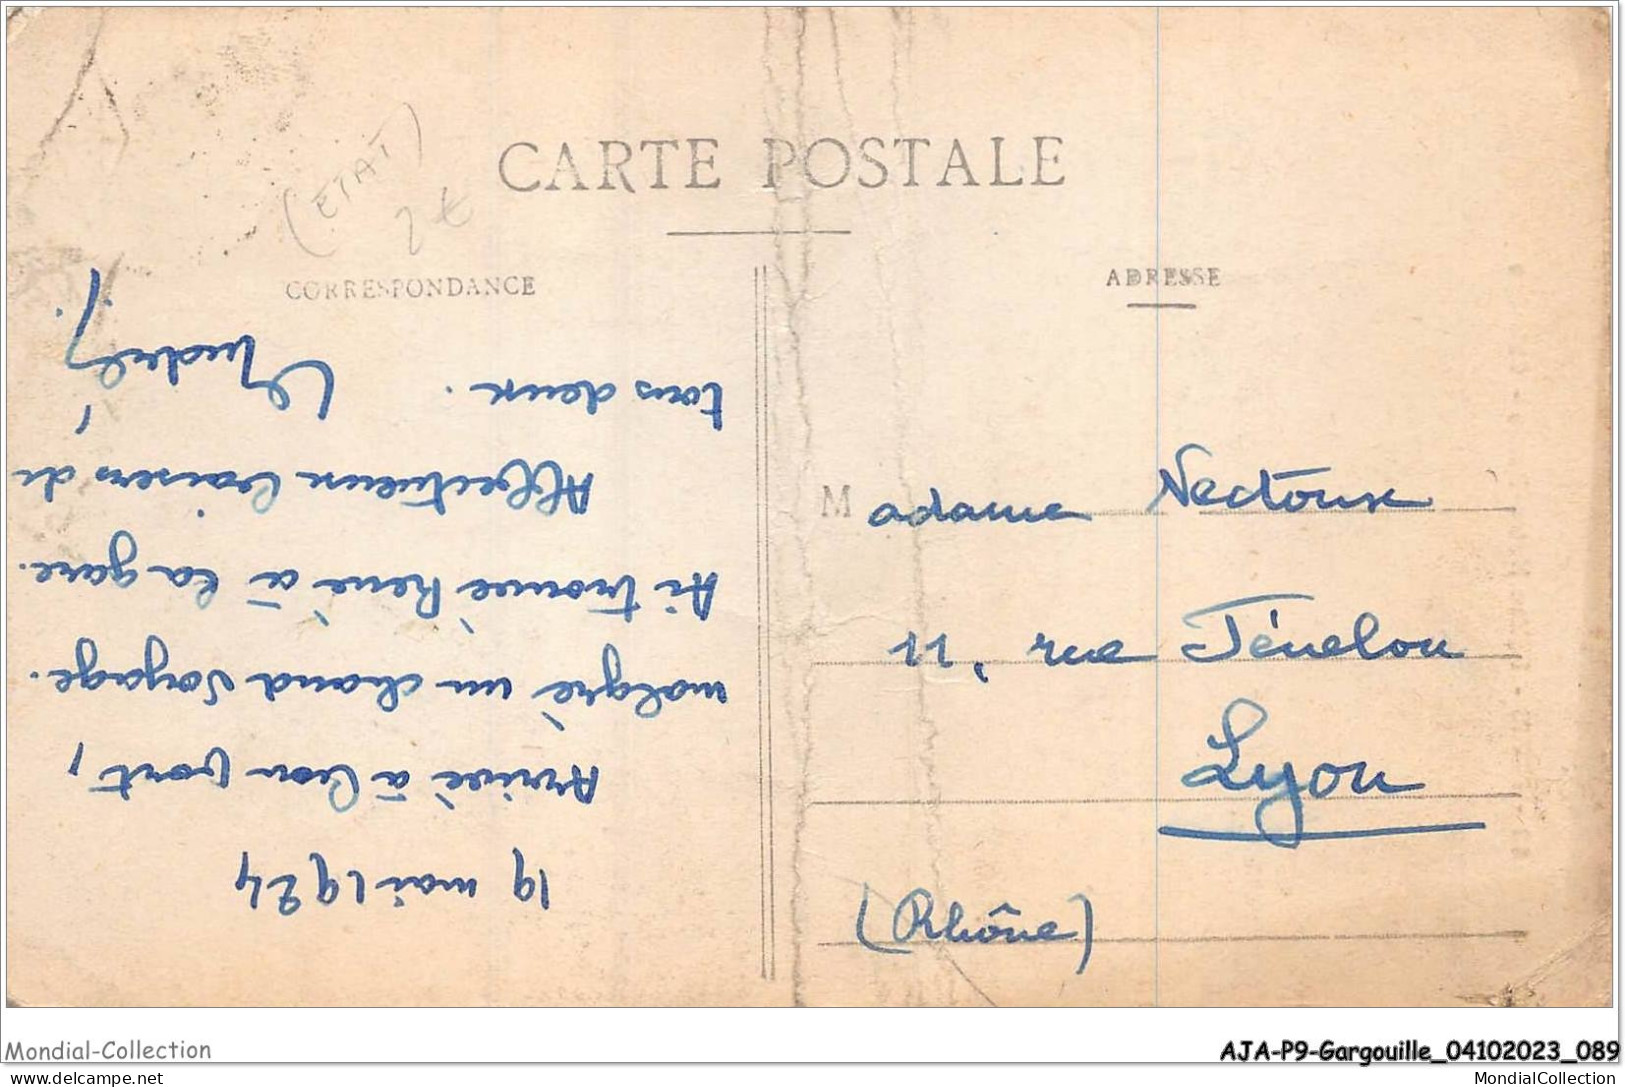 (ETAT)
2 €
CARTE POSTALE
CORRESPONDANCE
19 mai 1924
Arrivé à bon port,
malgré un chaud voyage.
Ai trouvé René à la gare.
Affectueux baisers di
tous deux.
ADRESSE
Madame Nectoux
11, rue Fénelon
Lyon
(Rhône)
Mondial-Collection
AJA-P9-Gargouille_04102023_089
delcampe.net
MondialCollection